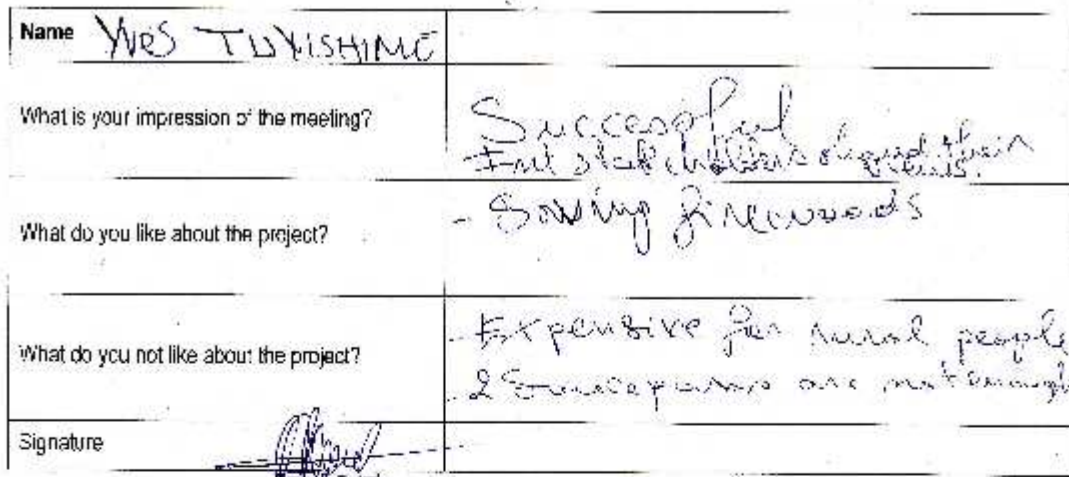 Name Yves TUYISHIME
What is your impression of the meeting?
Successful
stakeholders shared their
What do you like about the project?
- Saving firewoods
What do you not like about the project?
- Expensive for rural people
- 2 are not enough
Signature